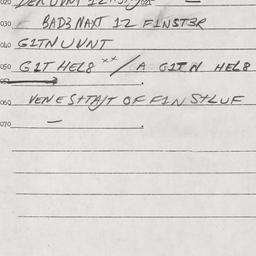 020
030 BAD3 NAXT 12 F1NST3R
040 G1TN UVNT
050 G1T HEL8 xx / A G1T N HEL8
052
060 VENE STTAJT OF F1N STLUF
070